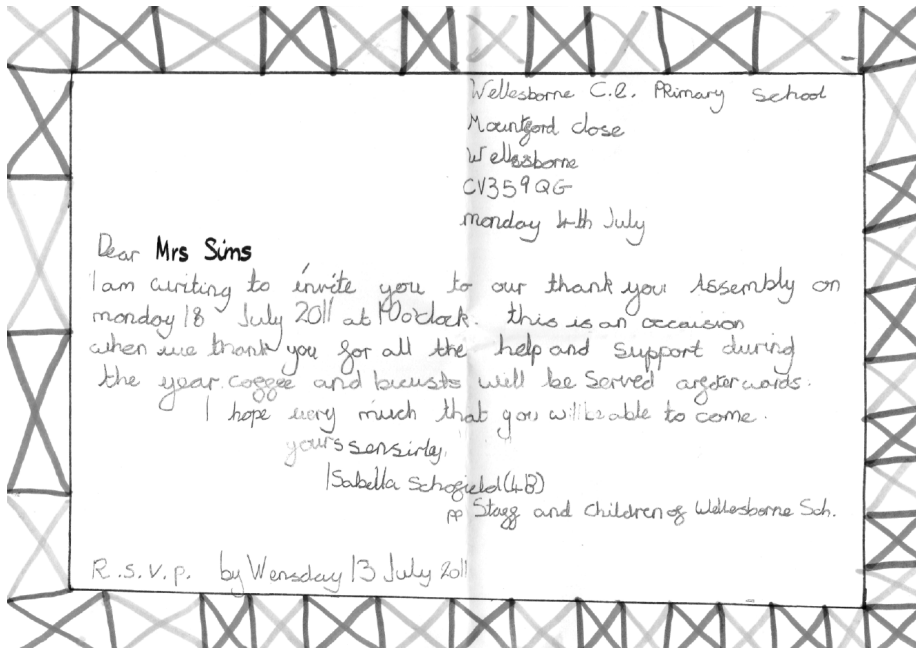 Wellesborne C.E. PRimary School
Mountford close
Wellesborne
CV359QG
monday 4th July
Dear Mrs Sims
I am writing to invite you to our thank you Assembly on
monday 18 July 2011 at 10o'clock. this is an occaision
when we thank you for all the help and support during
the year. coffee and bicusts will be served afterwards.
I hope very much that you will be able to come.
yours sensirley
Isabella Schofield (4B)
pp Staff and children of Wellesborne Sch.
R.S.V.P. by Wensday 13 July 2011